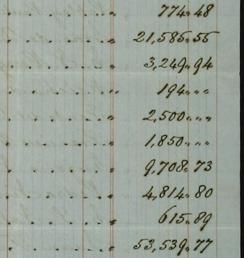 774.48
21,585.55
3,249.94
194 " "
2,500 " "
1,850 " "
9,708.73
4,814.80
615.89
53,539.77